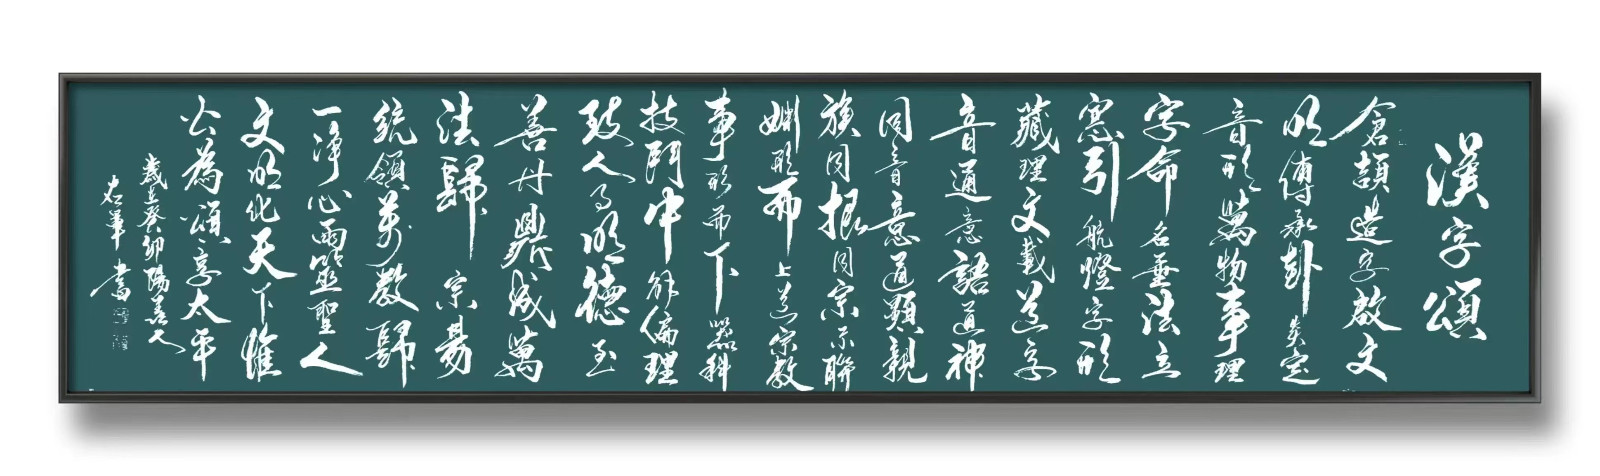 漢字頌
倉頡造字啟文
明傳承卦爻定
音形萬物事理
字命名垂法立
窓引航燈字形
藏理文載道字
音通意語道神
同音意道顯親
族同根同宗聯
婣形而上道宗教
事形而下器科
技鬥中解偏理
致人為明德至
善丹鼎成萬
法歸宗易
統領萬教歸
一淨心兩聖人
文明化天下惟
公為頌享太平
歲在癸卯陽善人
右軍書